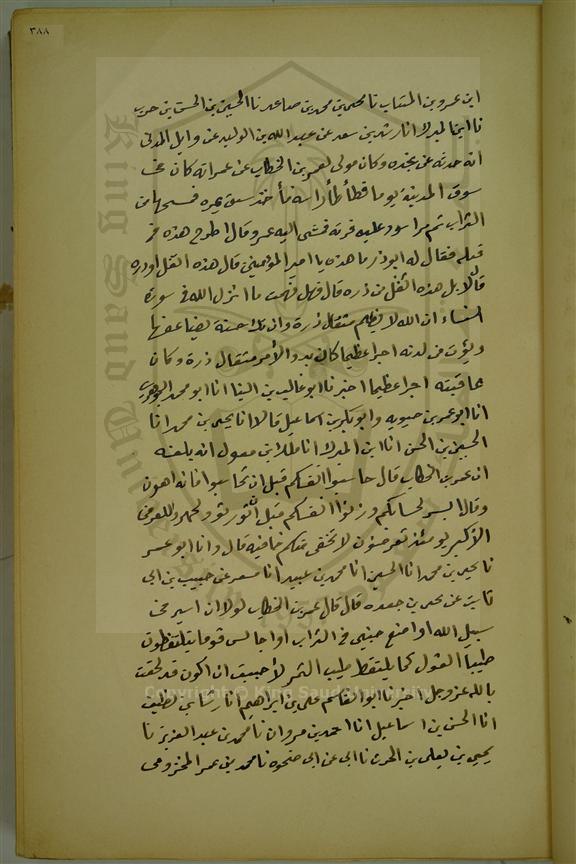 ٣٨٨
ابن عمرو بن المنتاب نا يحيى بن محمد بن صاعد نا الحسين بن الحسن بن حرب
نا ابن المبرك انا رشدين سعد عن عبد الله بن الوليد عن وايل المدنى
انه حدثه عن جده وكان مولى لعمر بن الخطاب عن عمر انه كان فى
سوق المدينة يوما فطأطأ راسه فأخذ شق تمره فمسحها من
التراب ثم مر اسود عليه قربه فمشى اليه عمر وقال اطرح هذه فى
فيك فقال له ابوذر ما هذه يا امير المؤمنين قال هذه اثقل او ذره
قال لا بل هذه اثقل من ذره قال فهل فهمت ما انزل الله فى سورة
النساء ان الله لا يظلم مثقال ذرة وان تك حسنة يضاعفها
ويؤت من لدنه اجرا عظيما كان بدو الامر مثقال ذرة وكان
عاقبته اجرا عظيما اخبرنا ابو غالب بن البنا انا ابو محمد الجوهرى
انا ابو عمر بن حيويه وابو بكر بن اسماعيل قالا نا يحيى بن محمد انا
الحسين بن الحسن انا ابن المبرك انا ملك بن مغول انه بلغه
ان عمر بن الخطاب قال حاسبوا انفسكم قبل ان تحاسبوا فانه اهون
وقال ايسر لحسابكم وزنوا انفسكم قبل ان توزنوا وتجهزوا للعرض
الاكبر يومئذ تعرضون لا تخفى منكم خافيه قال وانا ابو عمر
نا يحيى بن محمد انا الحسين انا محمد بن عبيد انا مسعر عن حبيب بن ابى
ثابت عن يحيى بن جعده قال قال عمر بن الخطاب لولا ان اسير فى
سبيل الله او اضع جبينى فى التراب او اجالس قوما يلتقطون
طيب القول كما يلتقط طيب التمر لاحببت ان اكون قد لحقت
بالله عز وجل اخبرنا ابو القاسم على بن ابراهيم انا رشا بن نظيف
انا الحسن بن اسماعيل انا احمد بن مروان نا محمد بن عبد العزيز نا
يحيى بن يعلى بن الحرث نا ابى عن ابى صخره نا محمد بن عمر المخزومى
King Saud University
Copyright © King Saud University